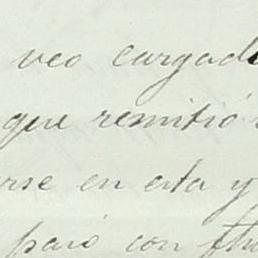 veo cargad
que remitió
rse en esta y
paró con